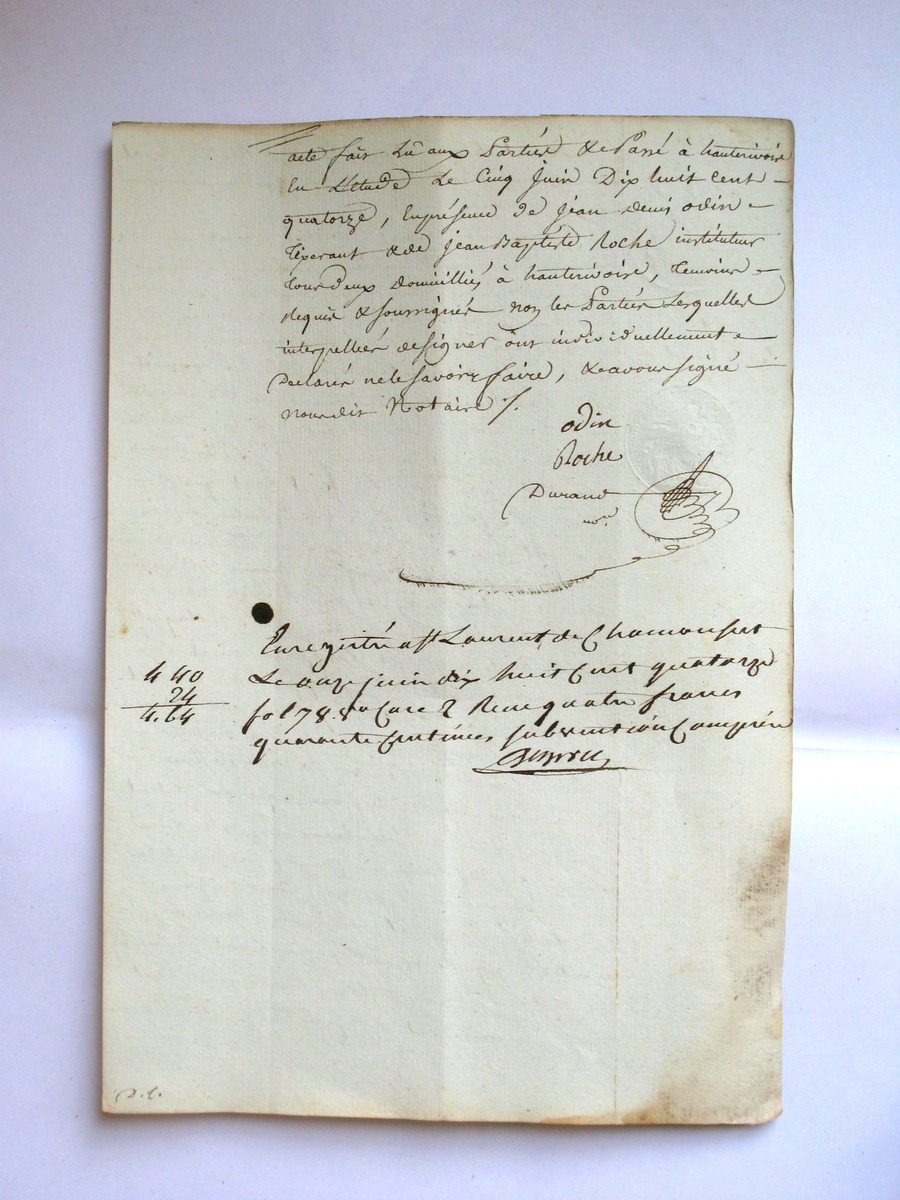 acte fait Lû aux Parties & Passé à hauterivoire
En L'etude Le Cinq Juin Dix huit cent
quatorze, En présence de jean denis odin
& de jean Baptiste Roche instituteur
tous deux domicilliés à hauterivoire, temoins
requis & soussignés non les Parties Lesquelles
interpellées de signer ont individuellement
Declarés ne le savoir faire, & avons signé
nousdit Notaire /.
odin
Roche
Durand
nore
Enregistré a st Laurent de Chamousset
Le onze juin dix huit cent quatorze
fol 78 Case 2 Recu quatre francs
quarante Centimes subvention Comprise
4 40
24
4.64